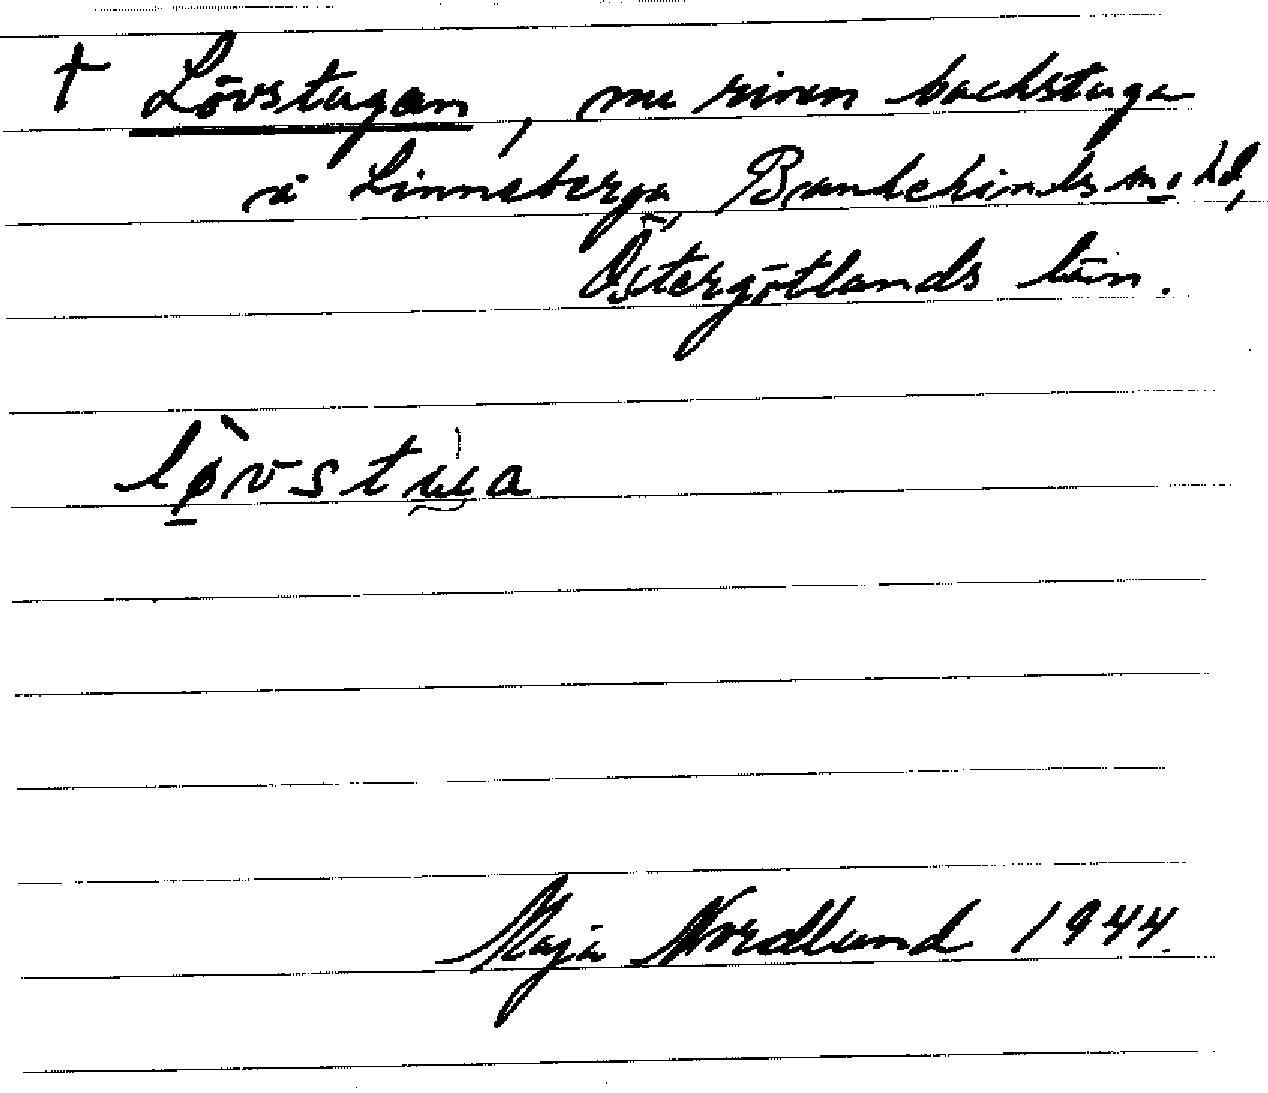 † Lövstugan, nu riven backstuga
i Linneberga Brandekinds sn. o hd,
Östergötlands län.
lø̀vstúa
Maja Nordlund 1944.